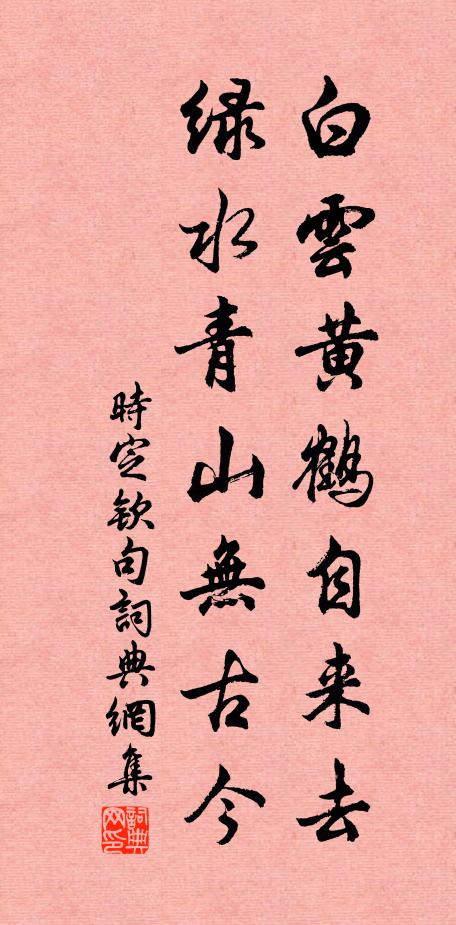 白雲黄鶴自来去
緑水青山無古今
時定欽句詞典網集
詞典网印